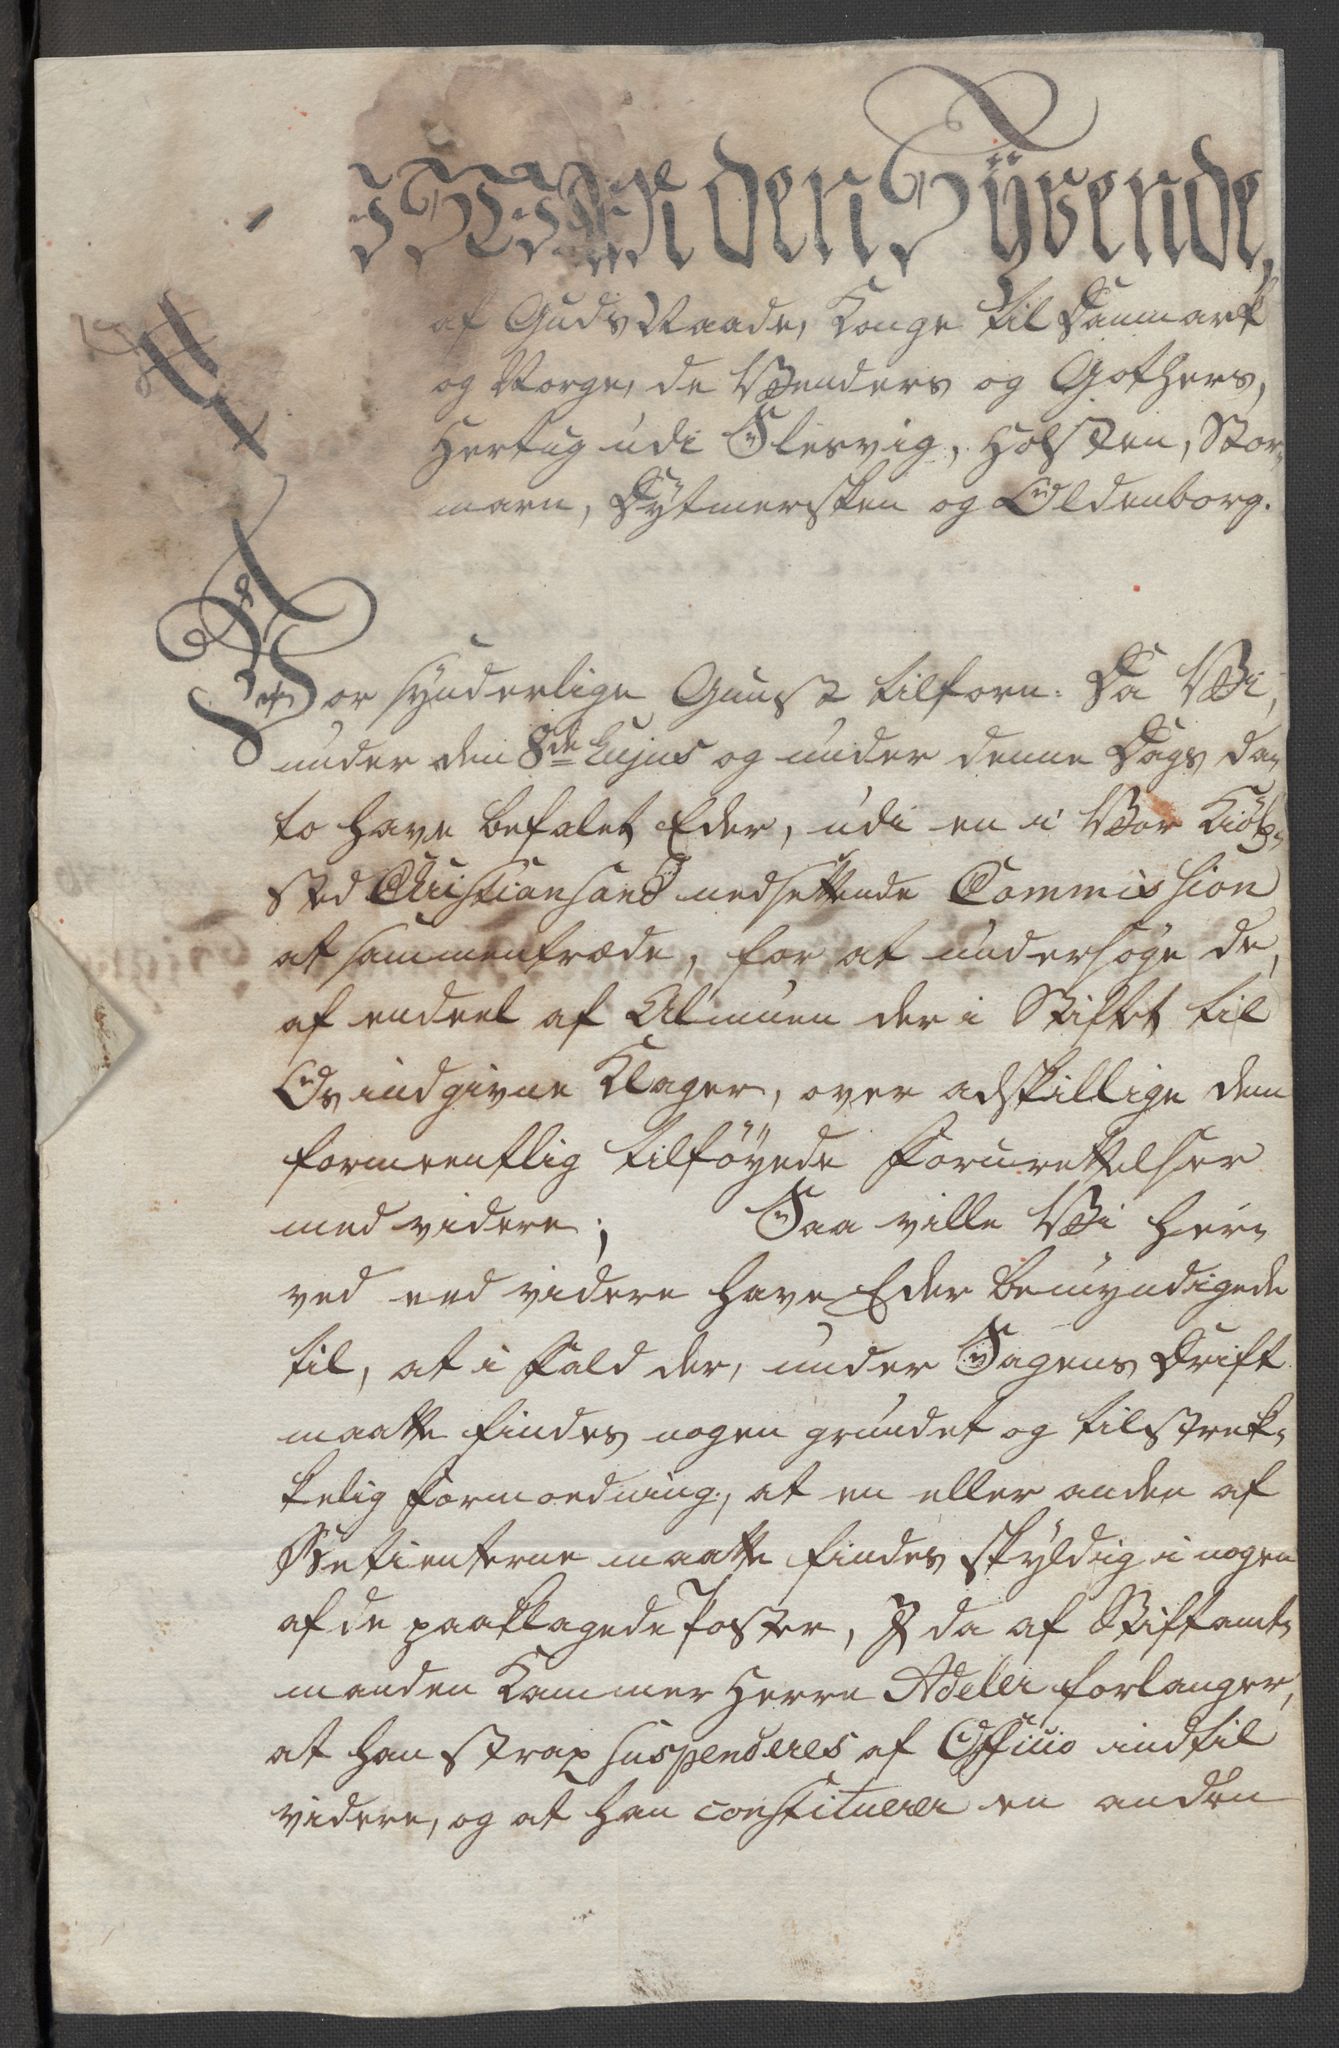 den Syvende,
af Guds Naade, Konge til Danmark
og Norge, de Wenders og Gothers,
Hertug udi Slesvig, Holsten, Stor-
marn, Dytmersken og Oldenborg.
Vor synderlige Gunst tilforn. Da Vi,
under den 8de hujus og under denne Dags da-
to have befalet Eder, udi en i Vor Kiöb-
sted Christiansand nedsettende Commission
at sammentræde, for at undersöge de,
af endeel af Almuen der i Stiftet til
Os indgivne Klager, over adskillige dem
formeentlig tilföyede Forurettelser
med videre; Saa ville Vi her-
ved end videre have Eder bemyndigede
til, at i Fald der, under Sagens Drift
maatte findes nogen grundet og tilstrek-
kelig Formodning, at en eller anden af
Betienterne maatte findes skyldig i nogen
af de paaklagede Poster, I da af Stiftamt-
manden Kammer Herre Adeler forlanger,
at han strax suspenderes af Officio indtil
videre, og at han constituerer en anden